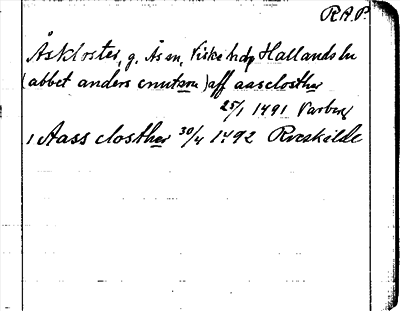 R.A.P.
Åskloster, g. Åsen, Viske hdp Hallands ln
(abbet anders cnutson) aff aasclosther
25/1 1491 Varberg
i Aass closther 30/4 1492 Roeskilde